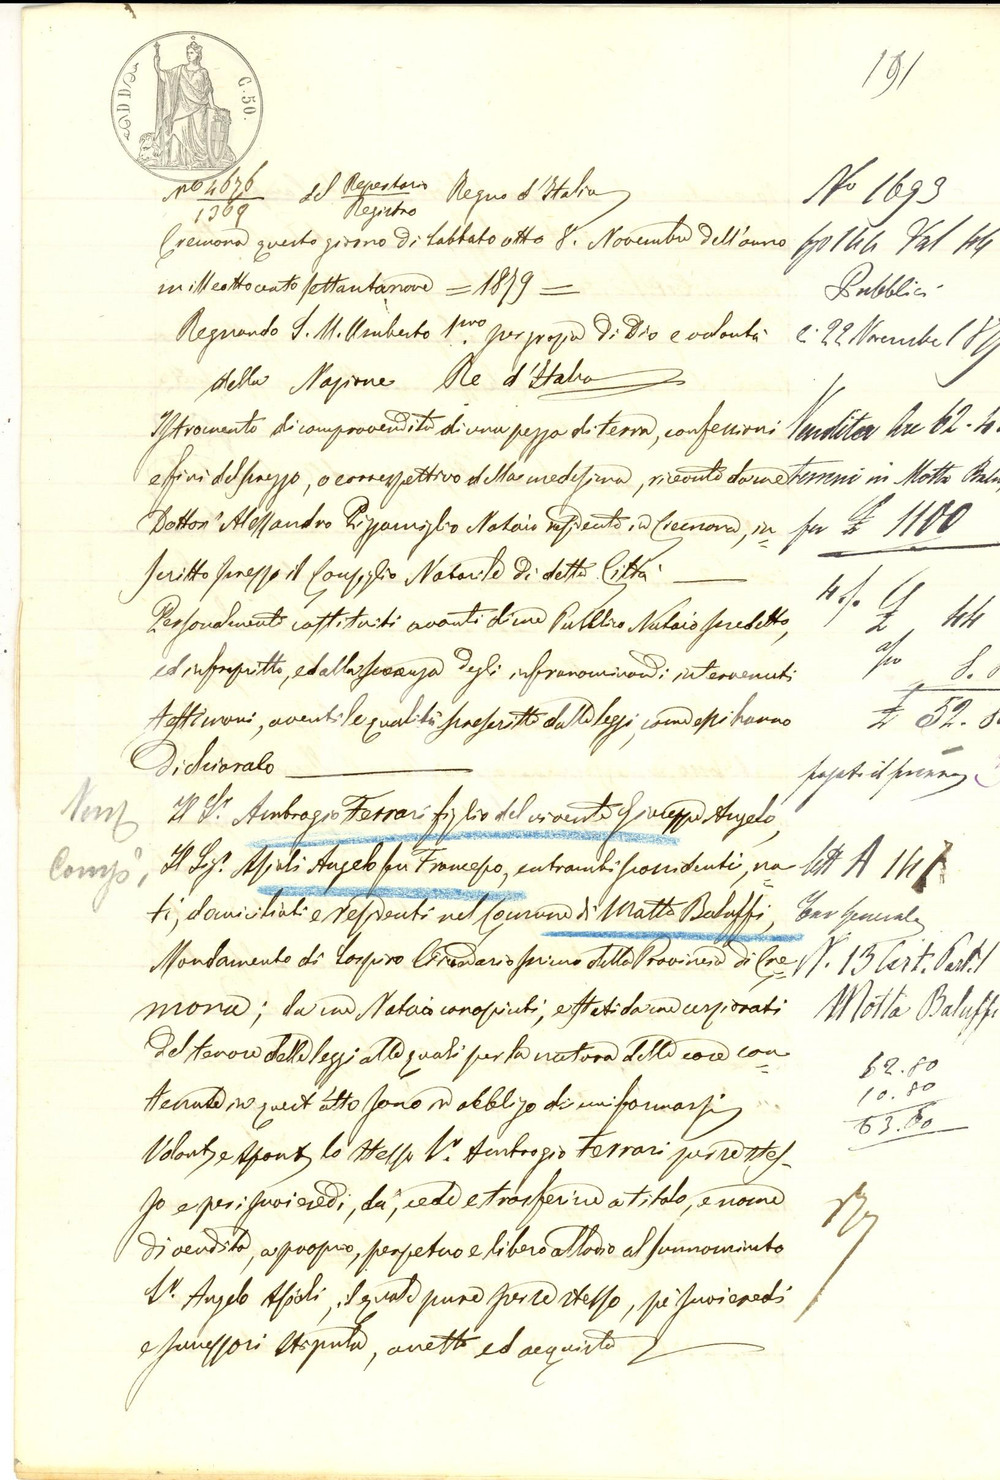 C. 50.
191
N° 4676 / 1369 del Repertorio / Registro Regno d'Italia
Cremona questo giorno di Sabbato otto 8. Novembre dell'anno
milleottocento settantanove = 1879 =
Regnando S. M. Umberto 1mo per grazia di Dio e volontà
della Nazione Re d'Italia
Istromento di compravendita di una pezza di terra, confessioni
e fini del prezzo, o correspettivo della medesima, ricevuto da me
Dottor Alessandro Pizzamiglio Notaio residente in Cremona, in=
scritto presso il Consiglio Notarile di detta Città
Personalmente costituiti avanti di me Pubblico Notaio predetto,
ed infrascritto, ed alla presenza degli infranominandi intervenuti
testimoni, aventi le qualità prescritte dalle leggi, come essi hanno
dichiarato
Il Sr. Ambrogio Ferrari figlio del vivente Giuseppe Angelo,
Il Sigr. Aspoli Angelo fu Francesco, entrambi possidenti, na=
ti, domiciliati e residenti nel Comune di Motta Baluffi,
Mandamento di Sospiro Circondario primo della Provincia di Cre=
mona; da me Notaio conosciuti, e stati da me cerziorati
del tenore delle leggi alle quali per la natura delle cose con=
tenute in quest'atto sono in obbligo di uniformarsi
lo stesso Sr. Ambrogio Ferrari per se stes-
so e per i suoi eredi, dà, cede e trasferisce a titolo, e nome
di vendita, a proprio, perpetuo e libero allodio al sunnominato
Sr. Angelo Aspoli, il quale pure per se stesso, pe' suoi eredi
e successori stipula, accetta ed acquista
Vend
Comp.
N° 1693
Vol 44
Pubblici
li 22 Novembre 187
Vendita
terreni in Motta Balu
per £ 1100
£ 44
£ 52. 8
A 14
N. 13 Cert. Cat.
Motta Baluffi
52.80
10.80
63.60